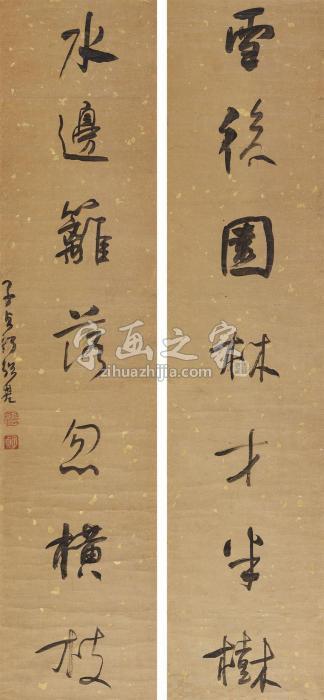 雪後園林才半樹
水邊籬落忽橫枝
子貞何紹基
字画之家
zihuazhijia.com